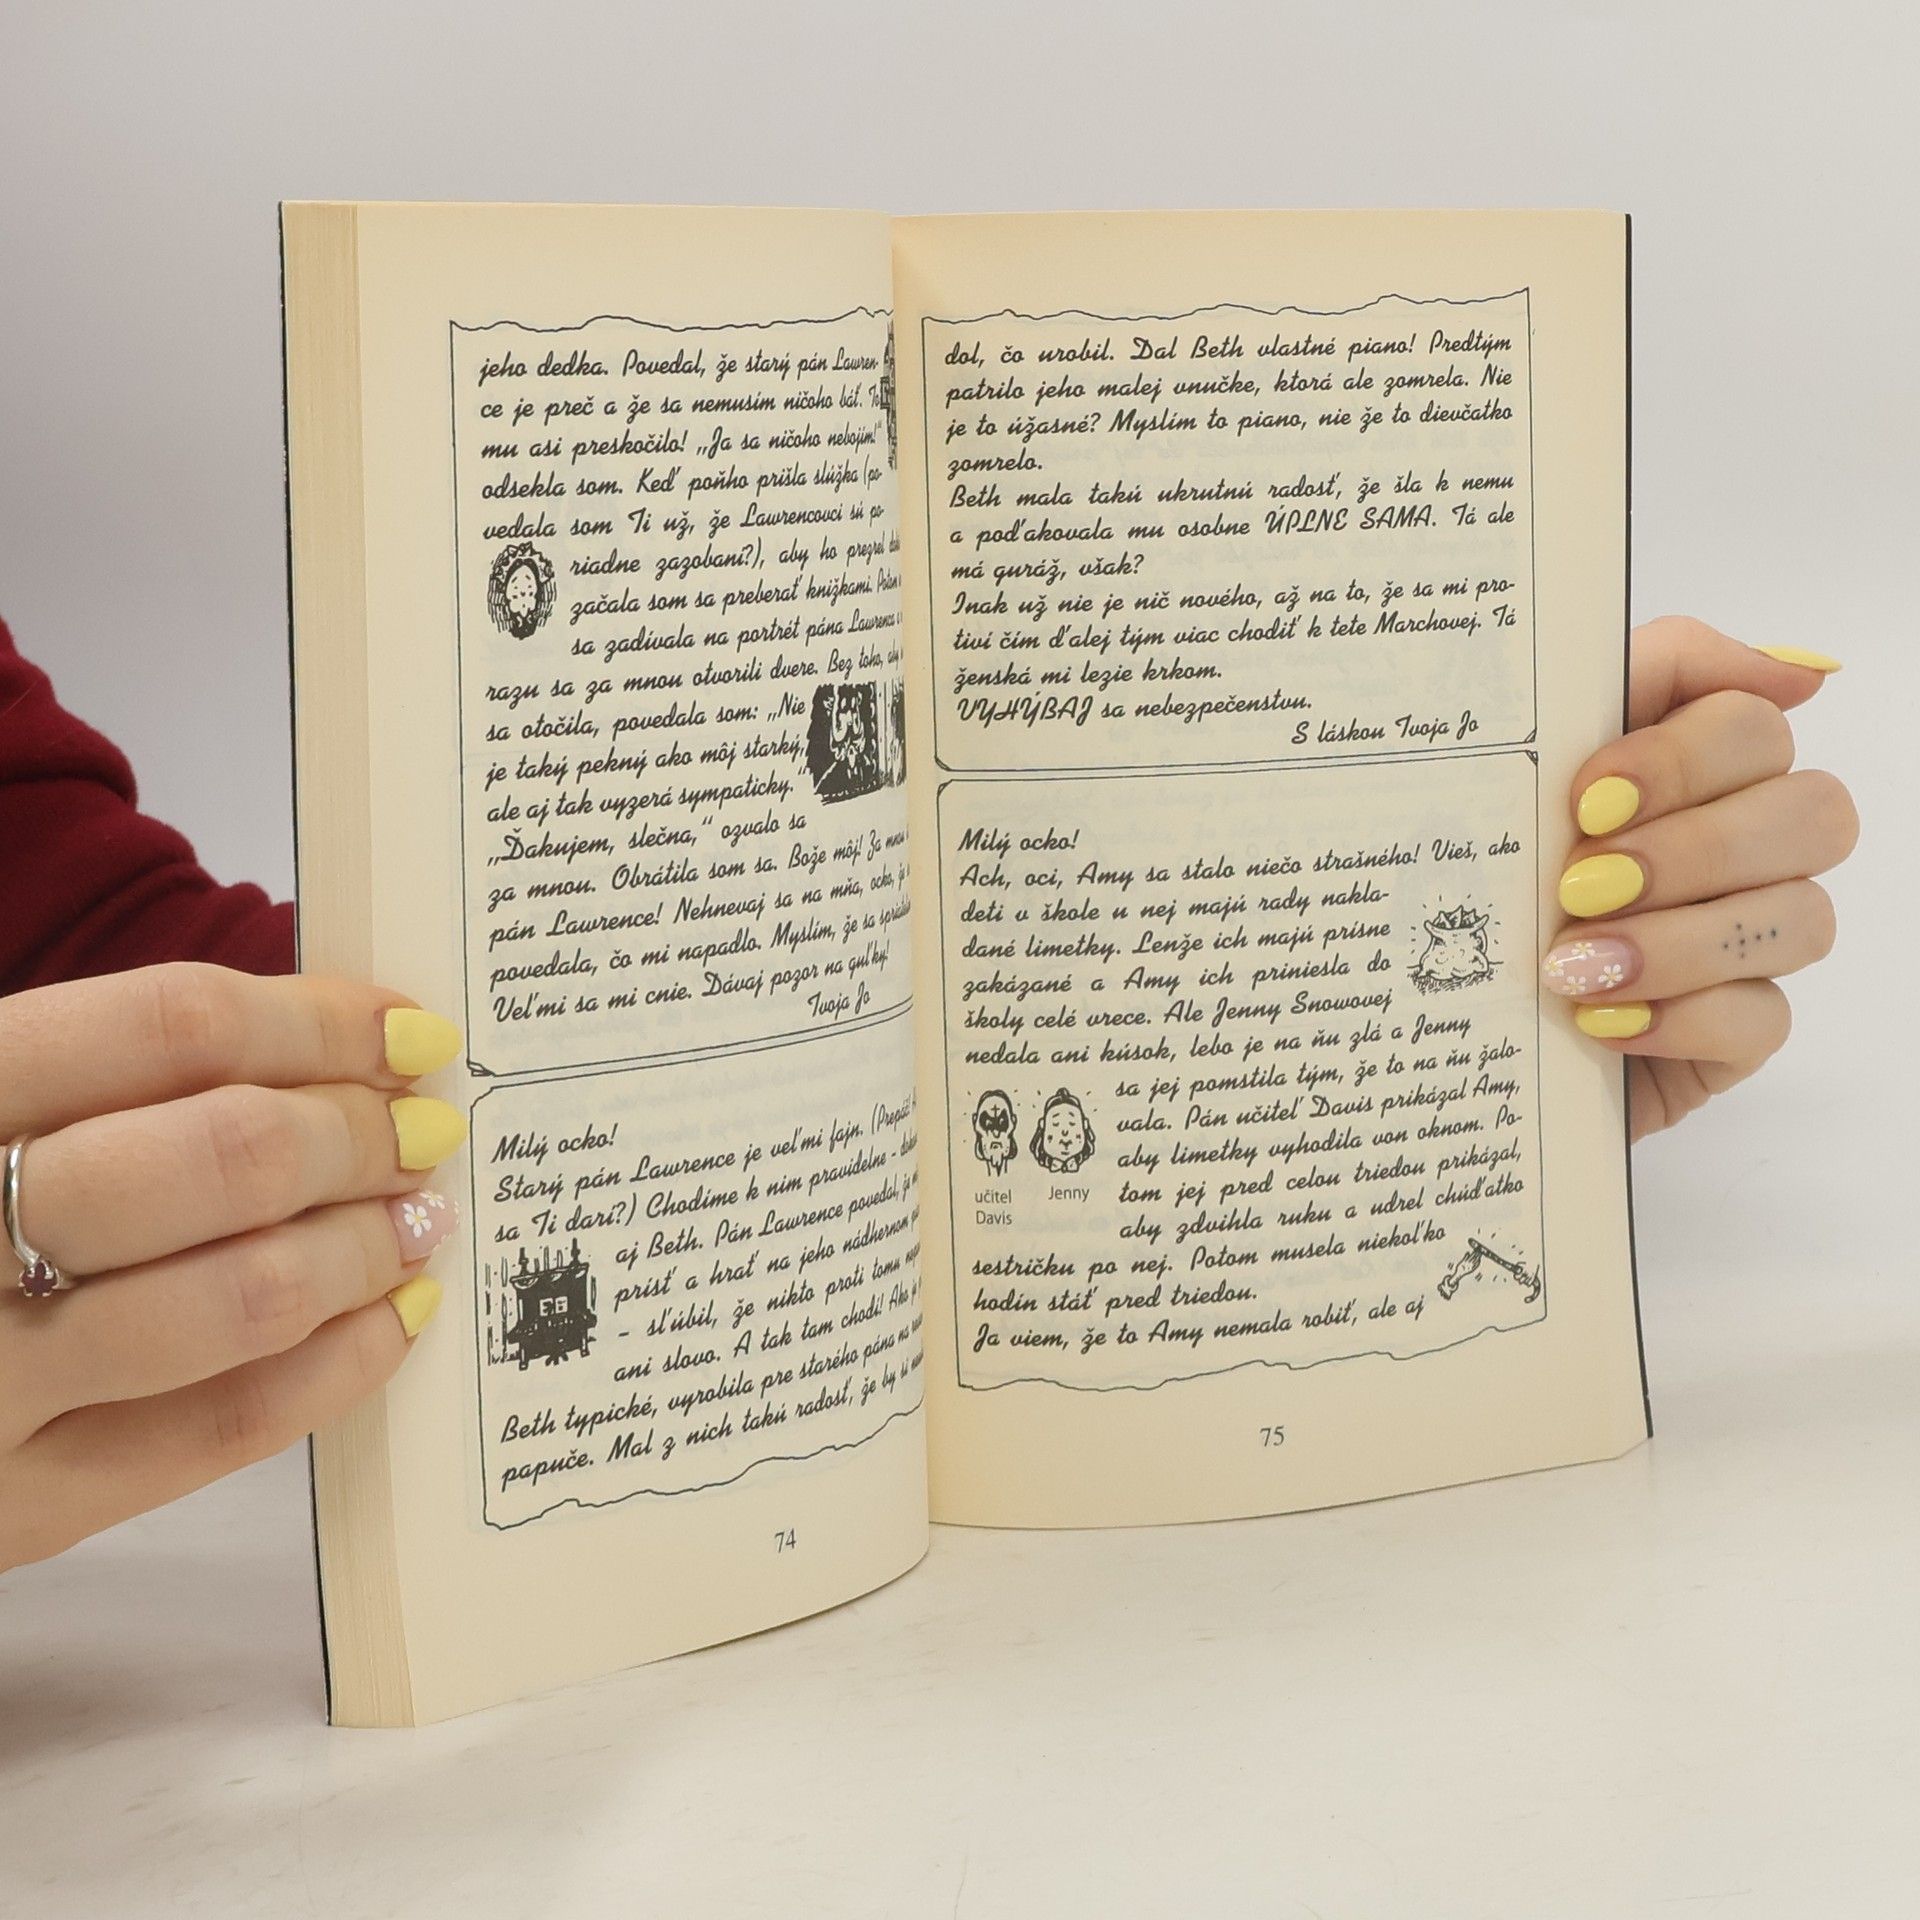 jeho dedka. Povedal, že starý pán Lawren-
ce je preč a že sa nemusím ničoho báť. To
mu asi preskočilo! „Ja sa ničoho nebojím!“
odsekla som. Keď poňho prišla slúžka (po-
vedala som Ti už, že Lawrencovci sú po-
riadne zazobaní?), aby ho prezrel
začala som sa preberať knižkami. Potom
sa zadívala na portrét pána Lawrenca
razu sa za mnou otvorili dvere. Bez toho, aby
sa otočila, povedala som: „Nie
je taký pekný ako môj starký,
ale aj tak vyzerá sympaticky.“
„Ďakujem, slečna,“ ozvalo sa
za mnou. Obrátila som sa. Bože môj! Za mnou
pán Lawrence! Nehnevaj sa na mňa, ocko,
povedala, čo mi napadlo. Myslím, že sa
Veľmi sa mi cnie. Dávaj pozor na guľky!
Tvoja Jo
Milý ocko!
Starý pán Lawrence je veľmi fajn. (Prepáč!
sa Ti darí?) Chodíme k nim pravidelne –
aj Beth. Pán Lawrence povedal,
prísť a hrať na jeho nádhernom
– sľúbil, že nikto proti tomu
ani slovo. A tak tam chodí! Ako je
Beth typické, vyrobila pre starého pána na
papuče. Mal z nich takú radosť, že by si
74
dol, čo urobil. Dal Beth vlastné piano! Predtým
patrilo jeho malej vnučke, ktorá ale zomrela. Nie
je to úžasné? Myslím to piano, nie že to dievčatko
zomrelo.
Beth mala takú ukrutnú radosť, že šla k nemu
a poďakovala mu osobne ÚPLNE SAMA. Tá ale
má guráž, však?
Inak už nie je nič nového, až na to, že sa mi pro-
tiví čím ďalej tým viac chodiť k tete Marchovej. Tá
ženská mi lezie krkom.
VYHÝBAJ sa nebezpečenstvu.
S láskou Tvoja Jo
Milý ocko!
Ach, oci, Amy sa stalo niečo strašného! Vieš, ako
deti v škole u nej majú rady nakla-
dané limetky. Lenže ich majú prísne
zakázané a Amy ich priniesla do
školy celé vrece. Ale Jenny Snowovej
nedala ani kúsok, lebo je na ňu zlá a Jenny
sa jej pomstila tým, že to na ňu žalo-
vala. Pán učiteľ Davis prikázal Amy,
aby limetky vyhodila von oknom. Po-
tom jej pred celou triedou prikázal,
aby zdvihla ruku a udrel chúďatko
učitel
Davis
Jenny
sestričku po nej. Potom musela niekoľko
hodín stáť pred triedou.
Ja viem, že to Amy nemala robiť, ale aj
75